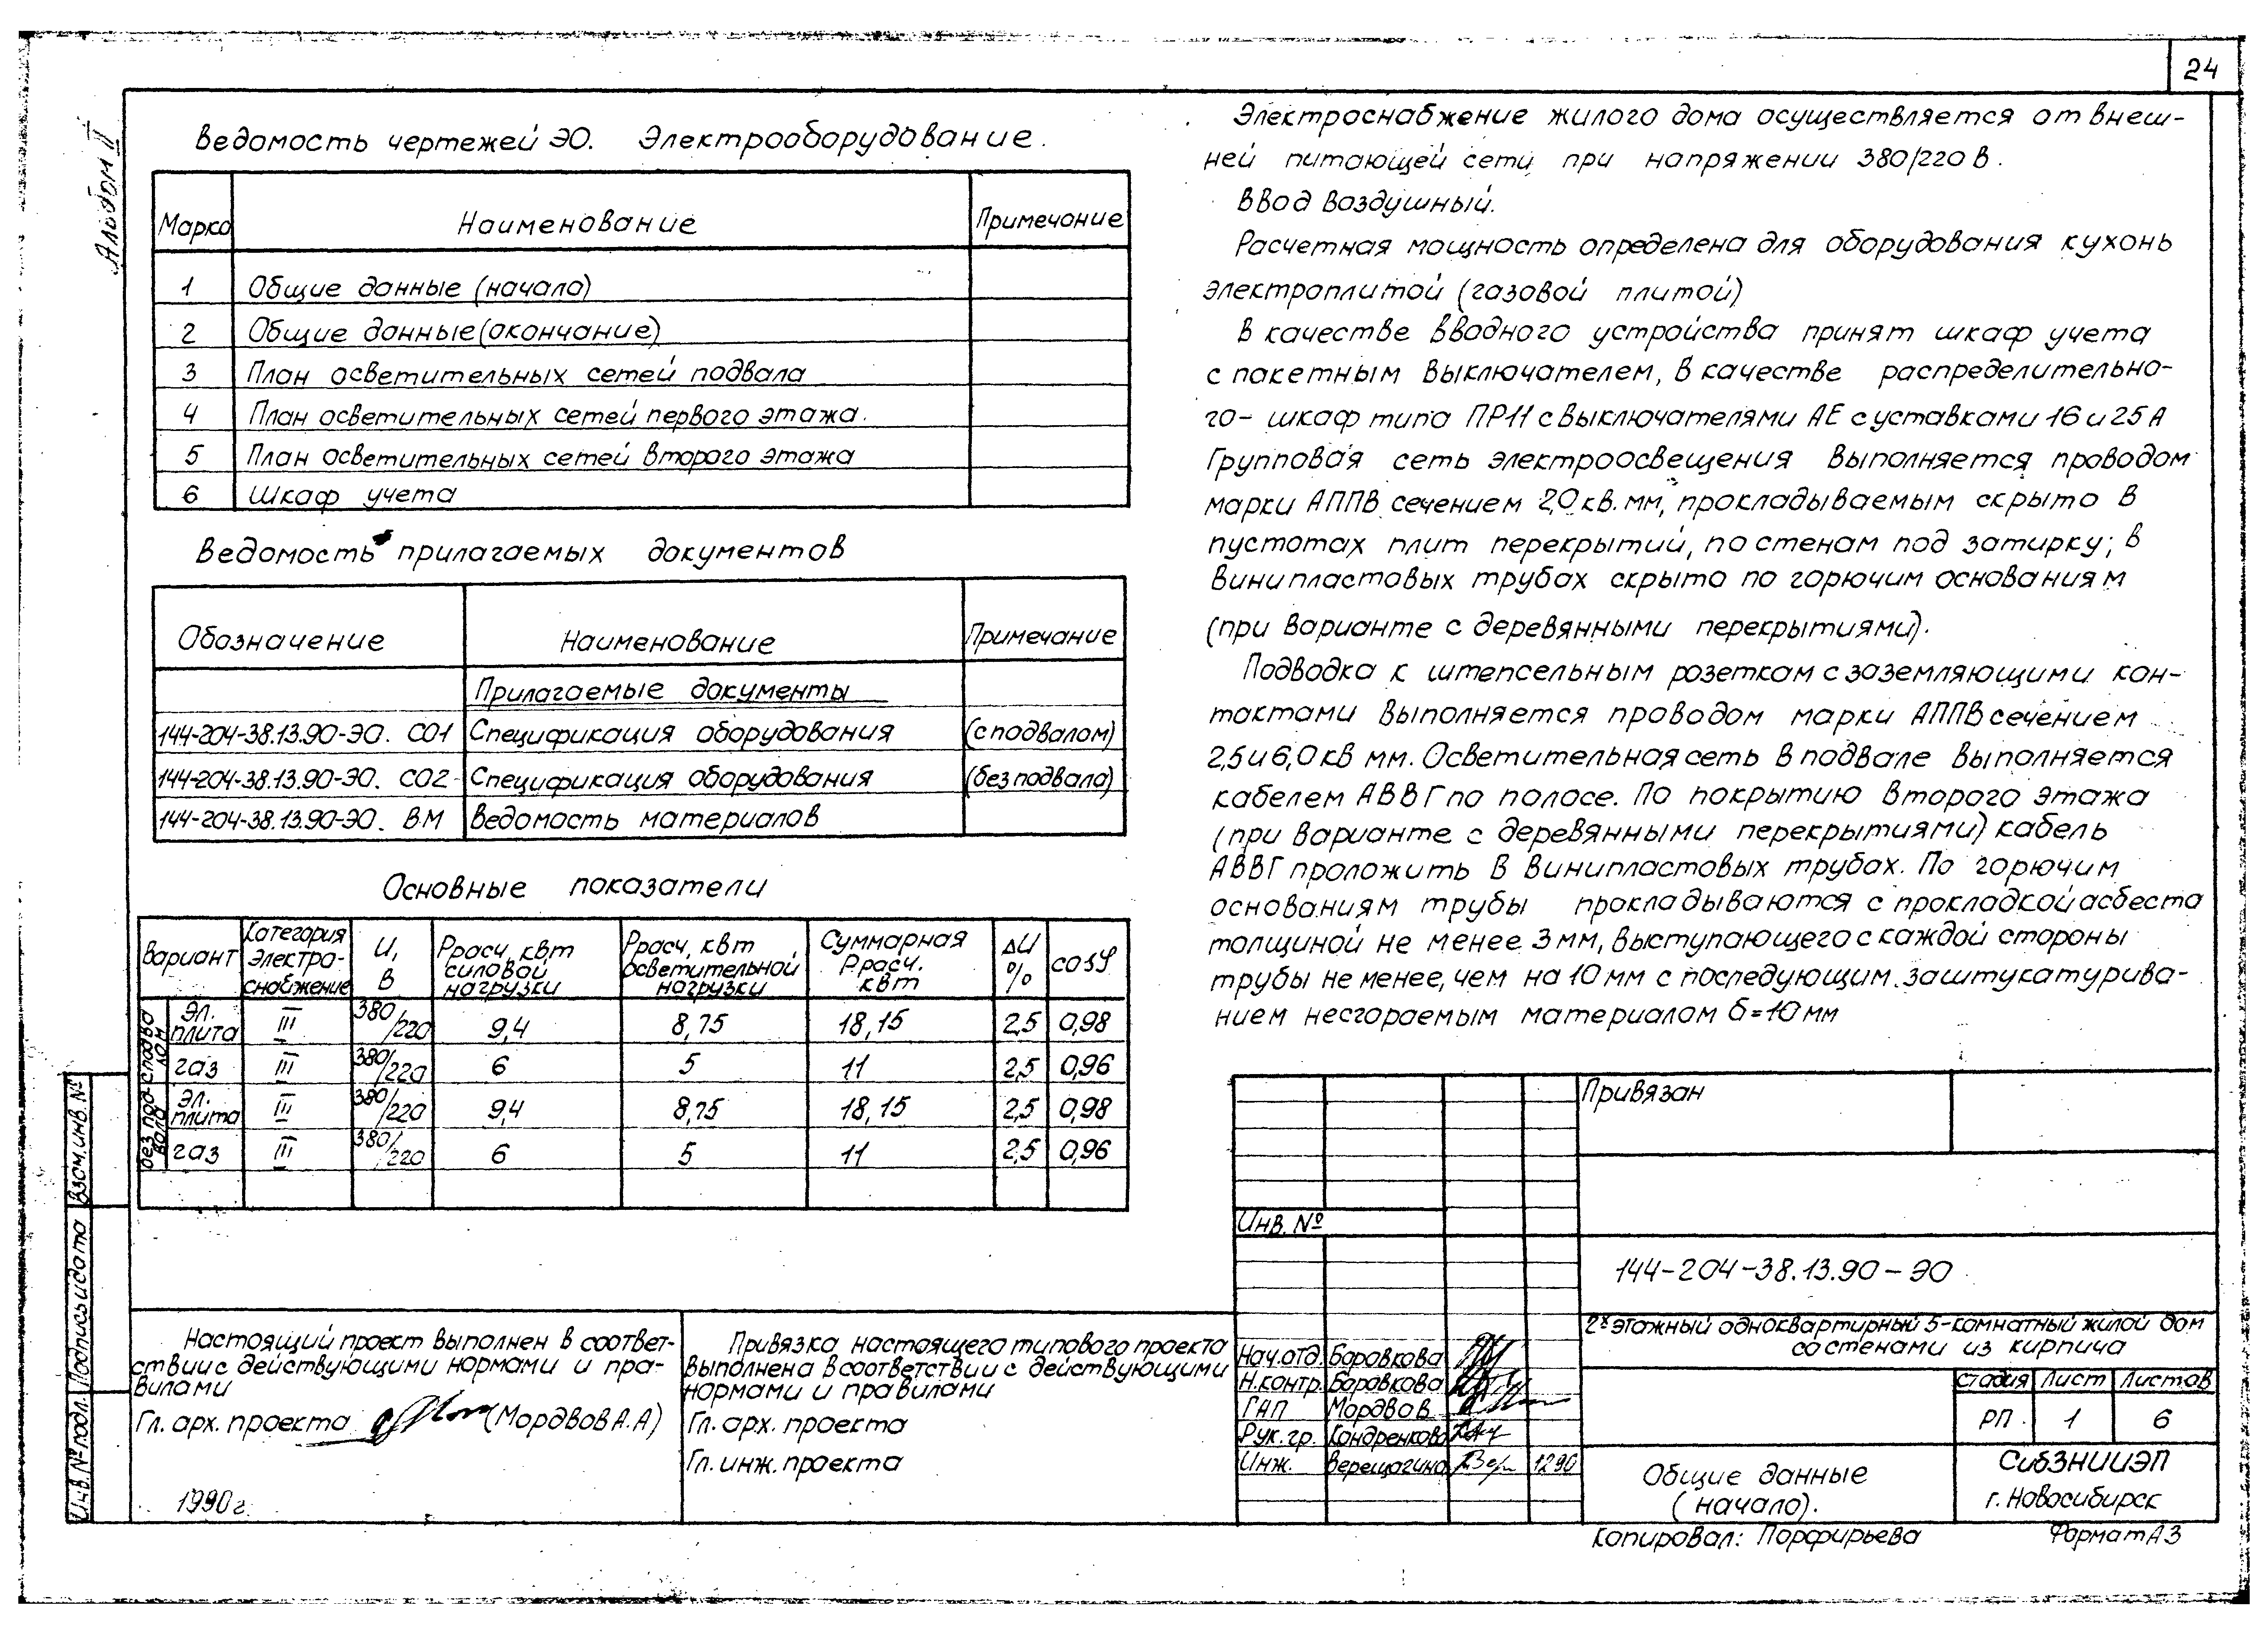 24
Альбом II
Ведомость чертежей ЭО. Электрооборудование.
Марка Наименование Примечание
1 Общие данные (начало)
2 Общие данные (окончание)
3 План осветительных сетей подвала
4 План осветительных сетей первого этажа.
5 План осветительных сетей второго этажа
6 Шкаф учета
Ведомость прилагаемых документов
Обозначение Наименование Примечание
Прилагаемые документы
144-204-38.13.90-ЭО. СО1 Спецификация оборудования (с подвалом)
144-204-38.13.90-ЭО. СО2 Спецификация оборудования (без подвала)
144-204-38.13.90-ЭО. ВМ Ведомость материалов
Основные показатели
Вариант Категория электро-снабжение U, В Ррасч, квт силовой нагрузки Ррасч, квт осветительной нагрузки Суммарная Ррасч. квт ΔU % cosφ
с подвалом Эл. плита III 380/220 9,4 8,75 18,15 2,5 0,98
газ III 380/220 6 5 11 2,5 0,96
без подвала Эл. плита III 380/220 9,4 8,75 18,15 2,5 0,98
газ III 380/220 6 5 11 2,5 0,96
Электроснабжение жилого дома осуществляется от внеш-
ней питающей сети при напряжении 380/220 В.
Ввод воздушный.
Расчетная мощность определена для оборудования кухонь
электроплитой (газовой плитой)
В качестве вводного устройства принят шкаф учета
с пакетным выключателем, в качестве распределительно-
го- шкаф типа ПР11 с выключателями АЕ с уставками 16 и 25 А
Групповая сеть электроосвещения выполняется проводом
марки АППВ сечением 2,0 кв. мм, прокладываемым скрыто в
пустотах плит перекрытий, по стенам под затирку; в
винипластовых трубах скрыто по горючим основаниям
(при варианте с деревянными перекрытиями).
Подводка к штепсельным розеткам с заземляющими кон-
тактами выполняется проводом марки АППВ сечением
2,5 и 6,0 кв мм. Осветительная сеть в подвале выполняется
кабелем АВВГ по полосе. По покрытию второго этажа
(при варианте с деревянными перекрытиями) кабель
АВВГ проложить в винипластовых трубах. По горючим
основаниям трубы прокладываются с прокладкой асбеста
толщиной не менее 3 мм, выступающего с каждой стороны
трубы не менее, чем на 10 мм с последующим заштукатурива-
нием несгораемым материалом б=10 мм
Привязан
Инв. №
144-204-38.13.90-ЭО
2х этажный одноквартирный 5-комнатный жилой дом
со стенами из кирпича
Нач.отд. Боровкова
Н.контр. Боровкова
ГАП Мордвов
Рук. гр. Кондренкова
Инж. Верещагина 12.90
Стадия Лист Листов
РП 1 6
Общие данные
(начало).
СибЗНИИЭП
г. Новосибирск
Настоящий проект выполнен в соответ-
ствии с действующими нормами и пра-
вилами
Гл. арх. проекта (Мордвов А.А)
1990 г.
Привязка настоящего типового проекта
выполнена в соответствии с действующими
нормами и правилами
Гл. арх. проекта
Гл. инж. проекта
Взам. инв. №
Подпись и дата
Инв. № подл.
Копировал: Порфирьева Формат А3